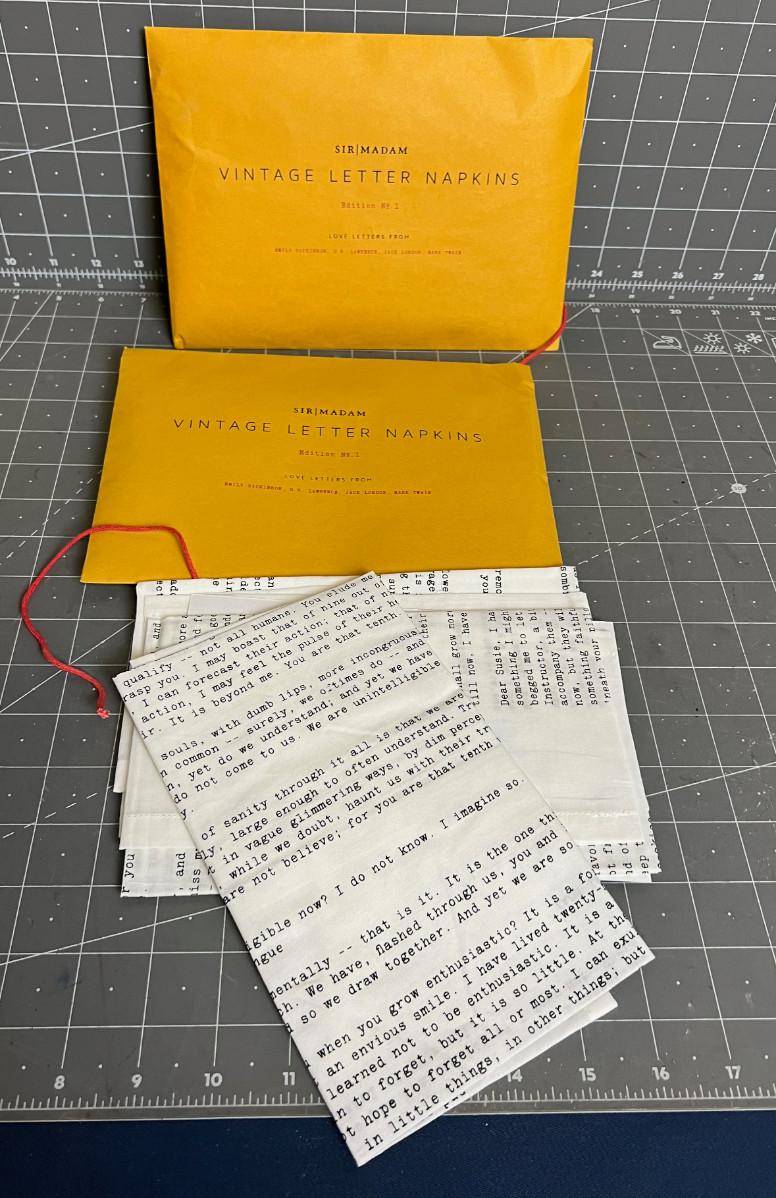 SIR|MADAM
VINTAGE LETTER NAPKINS
Edition Nº.1
LOVE LETTERS FROM
EMILY DICKINSON, D.H. LAWRENCE, JACK LONDON, MARK TWAIN
10 11 12 13
24 25 26 27 28
18 19 20 21 22
SIR|MADAM
VINTAGE LETTER NAPKINS
Edition Nº.1
LOVE LETTERS FROM
EMILY DICKINSON, D.H. LAWRENCE, JACK LONDON, MARK TWAIN
qualify -- not all humans. You elude me
rasp you. I may boast that of nine out of
I can forecast their action; that of n
action, I may feel the pulse of their h
ir. It is beyond me. You are that tenth.
souls, with dumb lips, more incongruous
n common -- surely, we o-times do -- and
n, yet do we understand; and yet we have
do not come to us. We are unintelligible
y.
of sanity through it all is that we are
ly, large enough to often understand. Tr
t in vague glimmering ways, by dim perce
while we doubt, haunt us with their tr
are not believe; for you are that tenth
igible now? I do not know. I imagine so.
ngue
mentally -- that is it. It is the one th
h. We have, flashed through us, you and
d so we draw together. And yet we are so
when you grow enthusiastic? It is a fo
an envious smile. I have lived twenty-
learned not to be enthusiastic. It is a
n to forget, but it is so little. At the
t hope to forget all or most. I can exu
in little things, in other things, but
Dear Susie, I ha
something I migh
begged me to let
Instructor, a bi
accompany them
now, but faithfu
something your ni
neath your
hall grow mor
till now, I have
their
r you
and
iss m
8 9 10 11 14 15 16 17